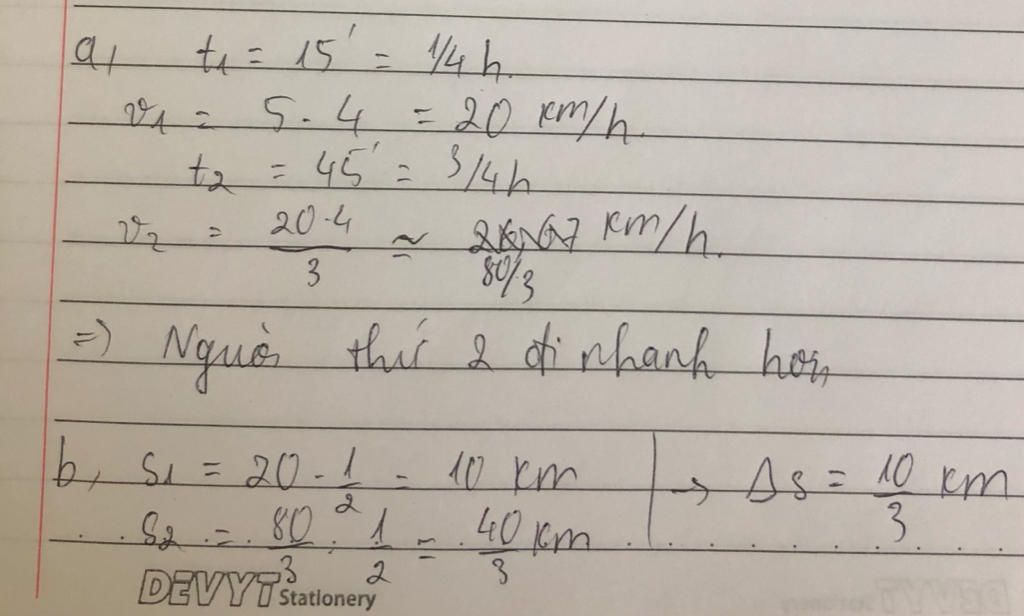 a, t₁ = 15' = 1/4 h.
v₁ = 5 . 4 = 20 km/h.
t₂ = 45' = 3/4 h
v₂ = 20.4/3 ≃ 80/3 km/h.
=) Người thứ 2 đi nhanh hơn,
b, s₁ = 20 . 1/2 = 10 km → Δs = 10/3 km
s₂ = 80/3 . 1/2 = 40/3 km
DEVYT Stationery